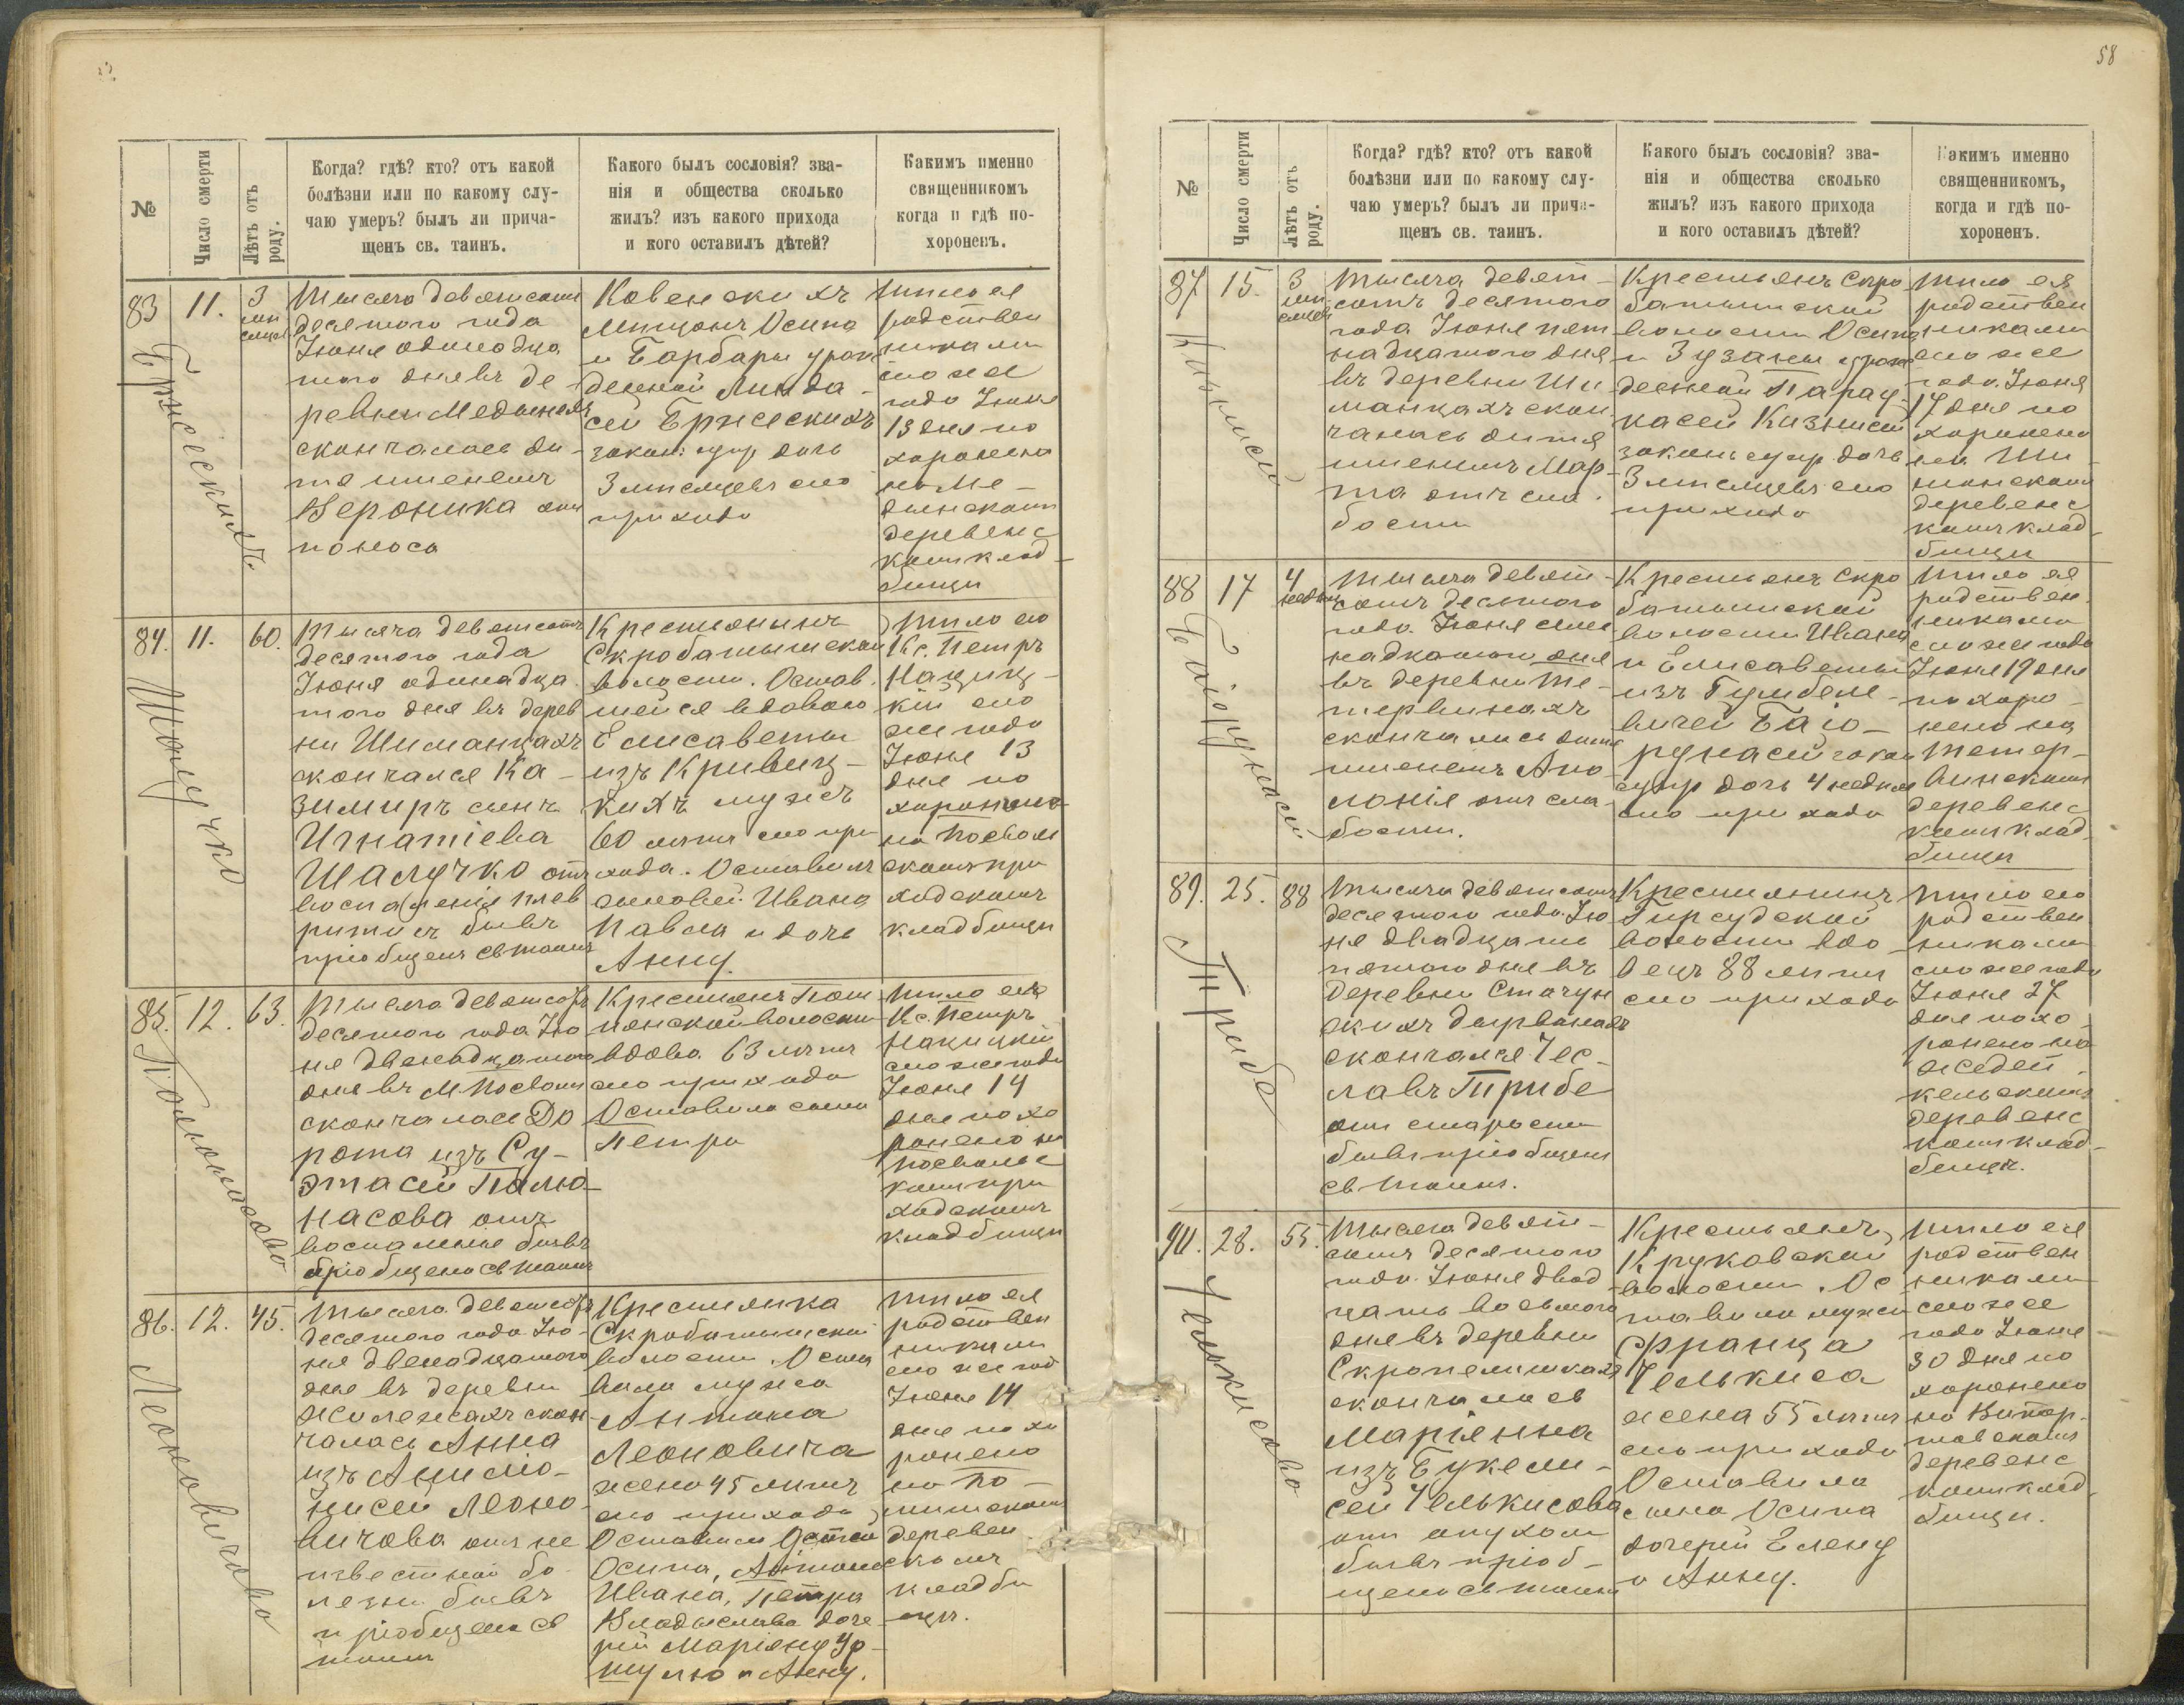 58
№
Число смерти
Лѣтъ отъ роду.
Когда? гдѣ? кто? отъ какой
болѣзни или по какому слу-
чаю умеръ? былъ ли прича-
щенъ св. таинъ.
Какого былъ сословія? зва-
нія и общества сколько
жилъ? изъ какого прихода
и кого оставилъ дѣтей?
Какимъ именно
священникомъ
когда и гдѣ по-
хороненъ.
83
11.
3
мѣ
сяцев
Тысяча девятсотъ
десятого года
Іюня одинадца
того дня въ де-
ревни Медынахъ
скончалась ди-
тя именемъ
Вероника отъ
поноса
Ковенскихъ
Мѣщанъ Осипа
и Барбары урож
денной Линда-
сей Бржескихъ
закон: супр дочь
3 мѣсяцевъ сего
прихода
Тѣло ея
родствен
никами
сего же
года Іюня
13 дня по
хоронено
на Ме-
дынскомъ
деревенс
комъ клад-
бищи
84.
11.
60.
Шалучко
Тысяча девятсотъ
десятого года
Іюня одинадца
того дня въ дерев
ни Шиманцахъ
скончался Ка-
зимиръ сынъ
Игнатіева
Шалучко отъ
воспаленія плев
ритисъ бывъ
пріобщенъ св таинъ
Крестьянинъ
Скробатышской
волости. Остав.
шейся вдовою
Елисаветы
изъ Кривиц-
кихъ мужъ
60 лѣтъ сего при
хода. Оставилъ
сыновей: Ивана
Павла и дочь
Анну.
Тѣло его
Кс. Петръ
Нациц-
кій сего
же года
Іюня 13
дня по
хоронено
на Посволь
скомъ при
ходскомъ
кладбищи
85.
12.
63.
Тысяча девятсотъ
десятого года Ію
ня двенадцатого
дня въ М. Посволи
скончалась До
рота изъ Су-
этасей Палю-
насова отъ
воспаленья бывъ
пріобщена св таинъ
вдова 63 лѣтъ
сего прихода
Оставила сына
Петра
Тѣло ея
Кс. Петръ
Нацицкій
сего же года
Іюня 14
дня похо
ронено на
Посвольс
комъ при
ходскомъ
кладбищи
86.
12.
45.
Леоновичова
Тысяча девятсотъ
десятого года Ію-
ня двенадцатого
дня въ деревни
скон-
чалась Анна
изъ
Леоно-
вичова отъ не
известной бо-
лезни бывъ
пріобщена св
таинъ
Крестьянка
Скробатышской
волости. Оста
вила мужа
Антона
Леоновича
жена 45 лѣтъ
сего прихода
Осипа, Антона
Ивана, Петра
Владыслава доче-
рей Маріяну Ур-
шулю и Анну.
Тѣло ея
родствен
никами
сего же год
Іюня 14
дня похо
ронено
деревен
скомъ
кладби
щи.
№
Число смерти
Лѣтъ отъ роду.
Когда? гдѣ? кто? отъ какой
болѣзни или по какому слу-
чаю умеръ? былъ ли прича-
щенъ св. таинъ.
Какого былъ сословія? зва-
нія и общества сколько
жилъ? изъ какого прихода
и кого оставилъ дѣтей?
Какимъ именно
священникомъ,
когда и гдѣ по-
хороненъ.
87
15.
3
мѣ
сяцев
Тысяча девят-
сотъ десятого
года Іюня пят
надцатого дня
въ деревни Ши-
манцахъ скон-
чалась дитя
именемъ Мар-
та отъ сла-
бости
Крестьянъ Скро
батышской
волости Осипа
и Зузаны урож
денной Парац-
касей
закон супр дочь
3 мѣсяцевъ сего
прихода
Тѣло ея
родствен
никами
сего же
года Іюня
17 дня по
хоронено
на Ши-
манскомъ
деревенс
комъ клад-
бищи
88
17
4
недѣл
Тысяча девят-
сотъ десятого
года Іюня сем
надцатого дня
въ деревни Те-
тервинахъ
скончалась дитя
именемъ Апо-
лонія отъ сла-
бости.
Крестьянъ Скро
батышской
волости Ивана
и Елисаветы
изъ Гумбеле-
вичей Байо-
рунасей закон
супр дочь 4 недѣли
сего прихода
Тѣло ея
родствен.
никами
сего же года
Іюня 19 дня
похоро-
нено на
Тетер-
винскомъ
деревенс
комъ клад-
бищи
89.
25.
88
Трибе
Тысяча девятсотъ
десятого года Ію
ня двадцать
пятого дня въ
деревни Стачун
скихъ дырванахъ
скончался Чес-
лавъ Трибе
отъ старости
бывъ пріобщенъ
св таинъ.
Крестьянинъ
Гирсудской
волости вдо-
вецъ 88 лѣтъ
сего прихода
Тѣло его
родствен
никами
сего же года
Іюня 27
дня похо-
ронено на
жедей-
кельскомъ
деревенс
комъ клад-
бищи.
90.
28.
55.
Челькисова
Тысяча девят-
сотъ десятого
года Іюня двад
цать восьмого
дня въ деревни
скончалась
Маріянна
изъ Букели-
сей Челькисова
отъ опухоли
бывъ пріоб-
щена св таинъ
Крестьянъ
Круковской
волости. Ос-
тавила мужа
Франца
Челькиса
жена 55 лѣтъ
сего прихода
Оставила
сына Осипа
дочерей Елену
и Анну.
Тѣло ея
родствен
никами
сего же
года Іюня
30 дня по
хоронено
деревенс
комъ клад-
бищи.